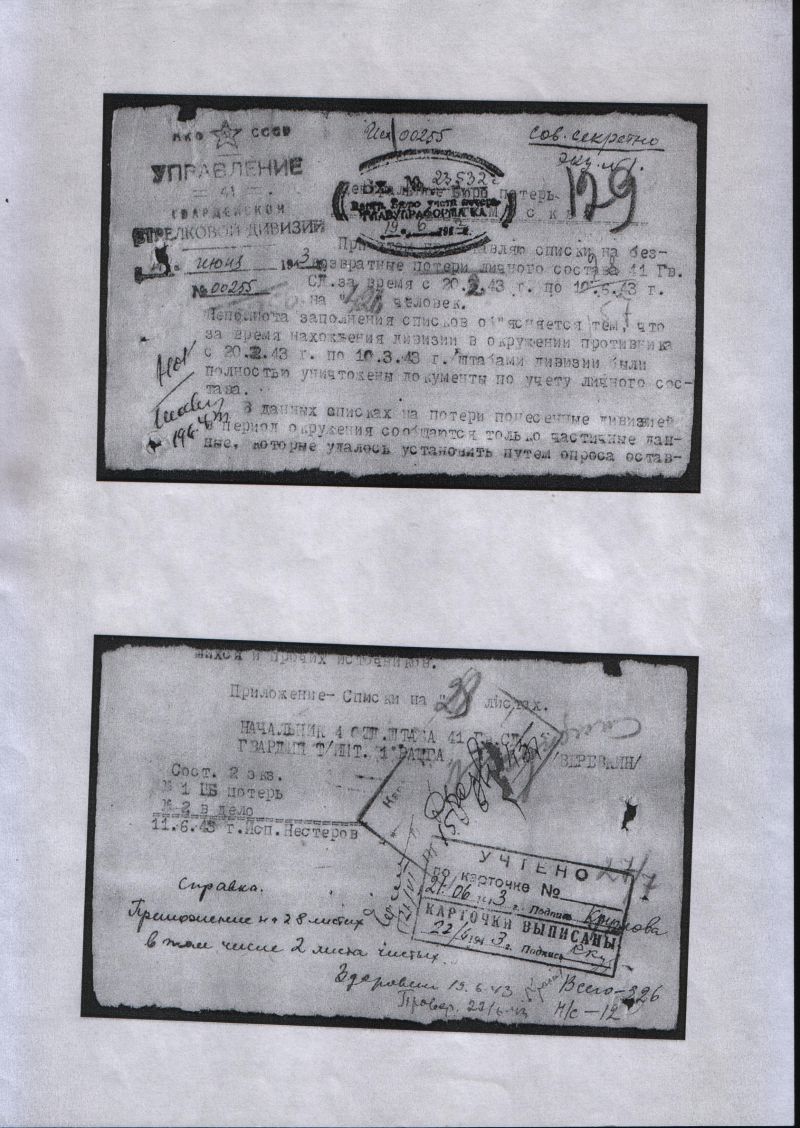 НКО СССР
УПРАВЛЕНИЕ
— 41 —
ГВАРДЕЙСКОЙ
СТРЕЛКОВОЙ ДИВИЗИИ
июня 1943
№ 00255
Исх 00255
Сов. секретно
экз. №1.
129
ВХ. № 23532с
Центр. Бюро учета потерь
ГЛАВУПРАФОРМА КА
19. 6 194 г.
Центральное Бюро потерь
При этом представляю списки на без-
возвратные потери личного состава 41 Гв.
СД.за время с 20.2.43 г. по 10.6.43 г.
на " " человек.
Неполнота заполнения списков об"ясняется тем, что
за время нахождения дивизии в окружении противника
с 20.2.43 г. по 10.3.43 г. штабами дивизии были
полностью уничтожены документы по учету личного сос-
тава.
В данных списках на потери понесенные дивизией
в период окружения сообщаются только частичные дан-
ные, которые удалось установить путем опроса остав-
19.6.43
шихся и прочих источников.
Приложение- Списки на "28 листах.
НАЧАЛЬНИК 4 ОТД.ШТАБА 41 Гв.СД
ГВАРДИИ Т/ИНТ. 1 РАНГА /ВЕРЕВКИН/
Сост. 2 экз.
№ 1 ЦБ потерь
№ 2 в дело
11.6.43 г.Исп.Нестеров
27/7
УЧТЕНО
по карточке №
21.06 1943 г. Подпись Крылова
КАРТОЧКИ ВЫПИСАНЫ
22/6 1943 г. Подпись
Справка.
Приложение на 28 листах
в том числе 2 листа чистых.
Здоровец 19.6.43
Провер. 22/6-43
Всего-326
Н/с-12